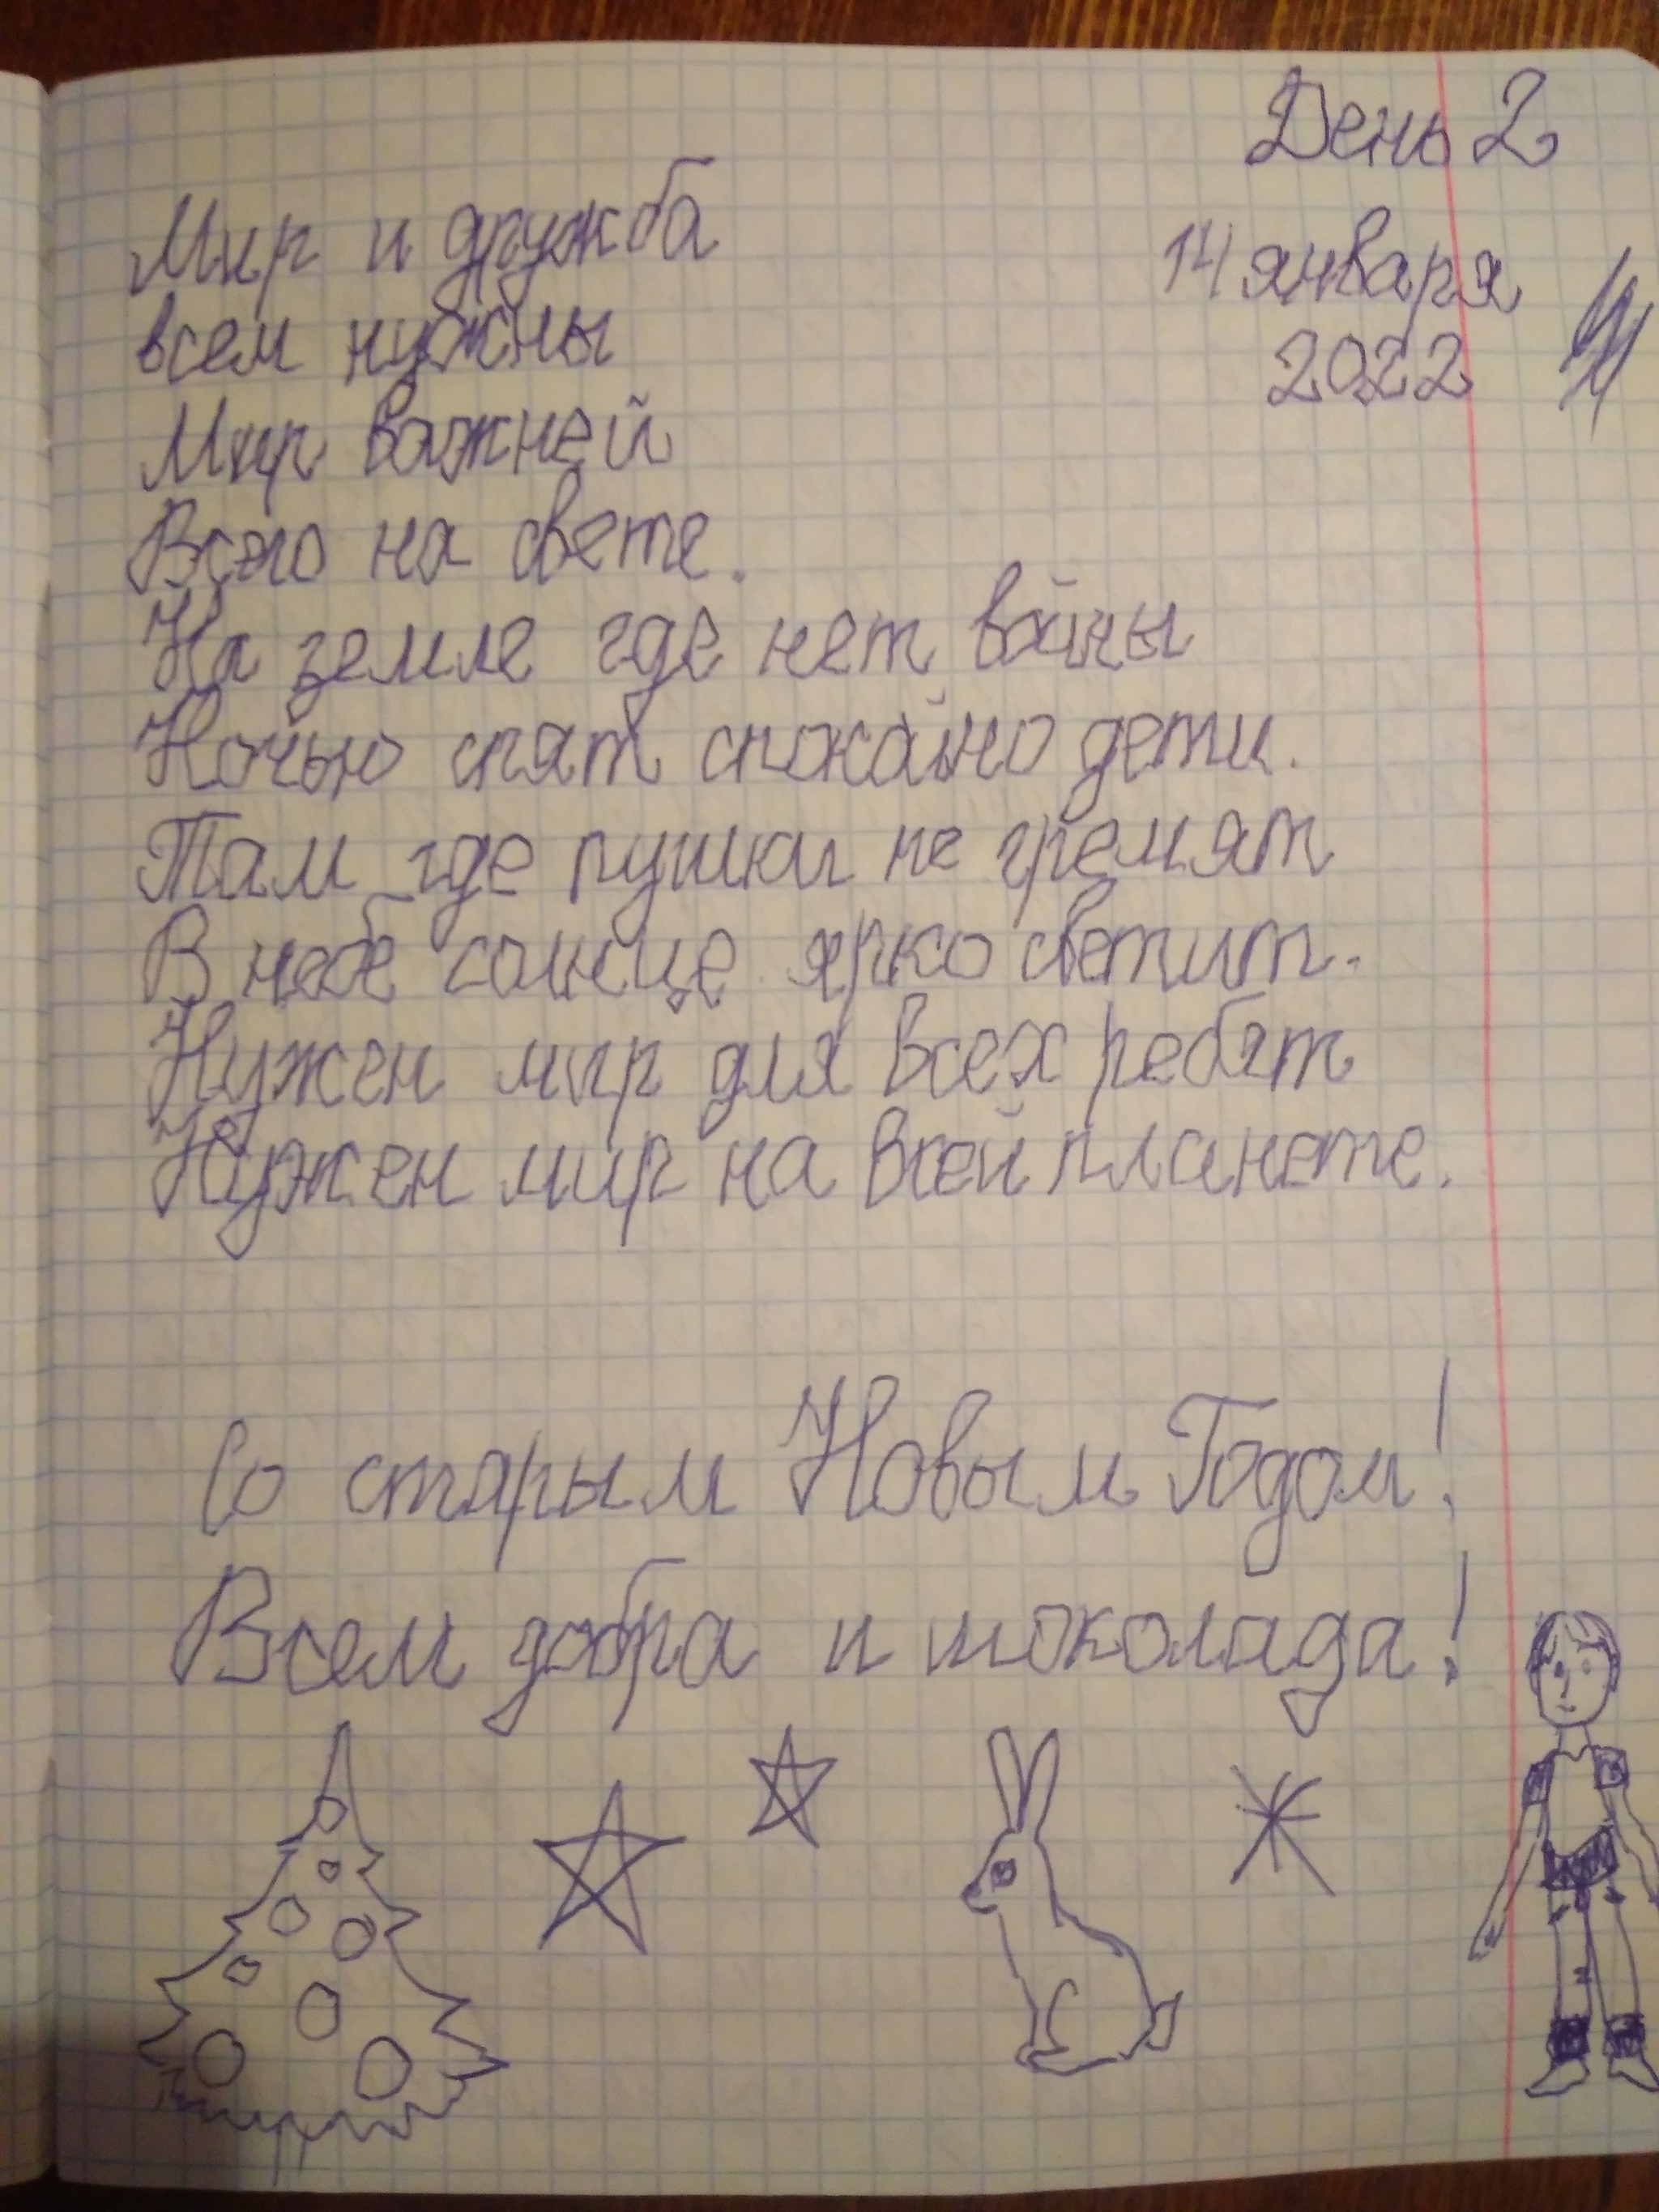 День 2
14 января
2022
Мир и дружба
всем нужны
Мир важней
Всего на свете.
На земле где нет войны
Ночью спят спокойно дети.
Там где пушки не гремят
В небе солнце ярко светит.
Нужен мир для всех ребят
Нужен мир на всей планете.
Со старым Новым Годом!
Всем добра и шоколада!